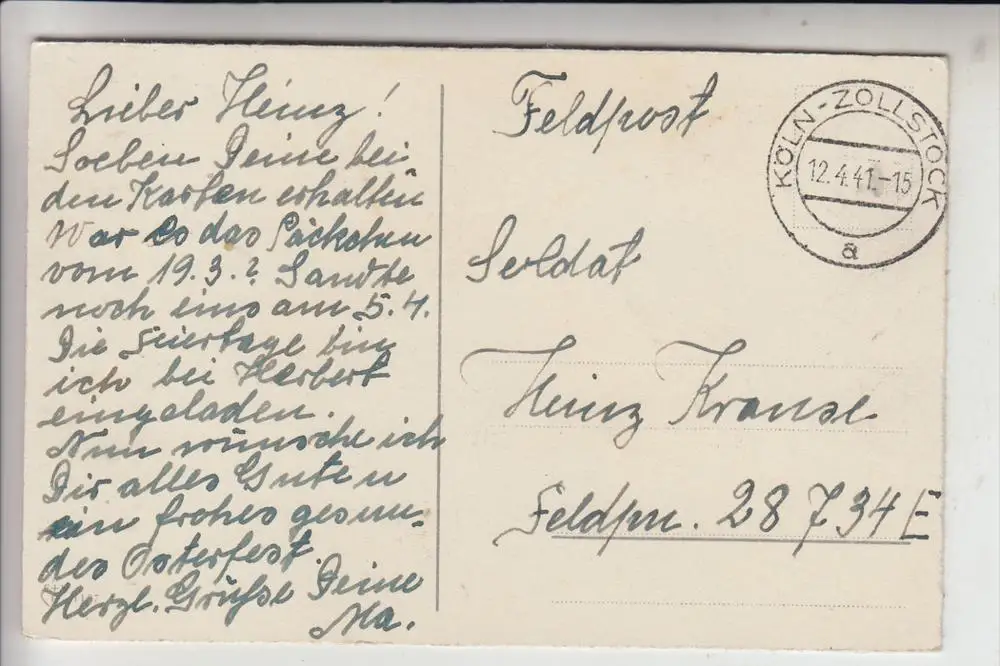 Lieber Heinz!
Soeben Deine bei
den Karten erhalten
War es das Päckchen
vom 19.3.? Sandte
noch eins am 5.4.
Die Feiertage bin
ich bei Herbert
eingeladen.
Nun wünsche ich
Dir alles Gute u
ein frohes gesun-
des Osterfest.
Herzl. Grüße Deine
Ma.
Feldpost
KÖLN-ZOLLSTOCK
12.4.41.-15
a
Soldat
Heinz Krause
Feldpn. 28734E